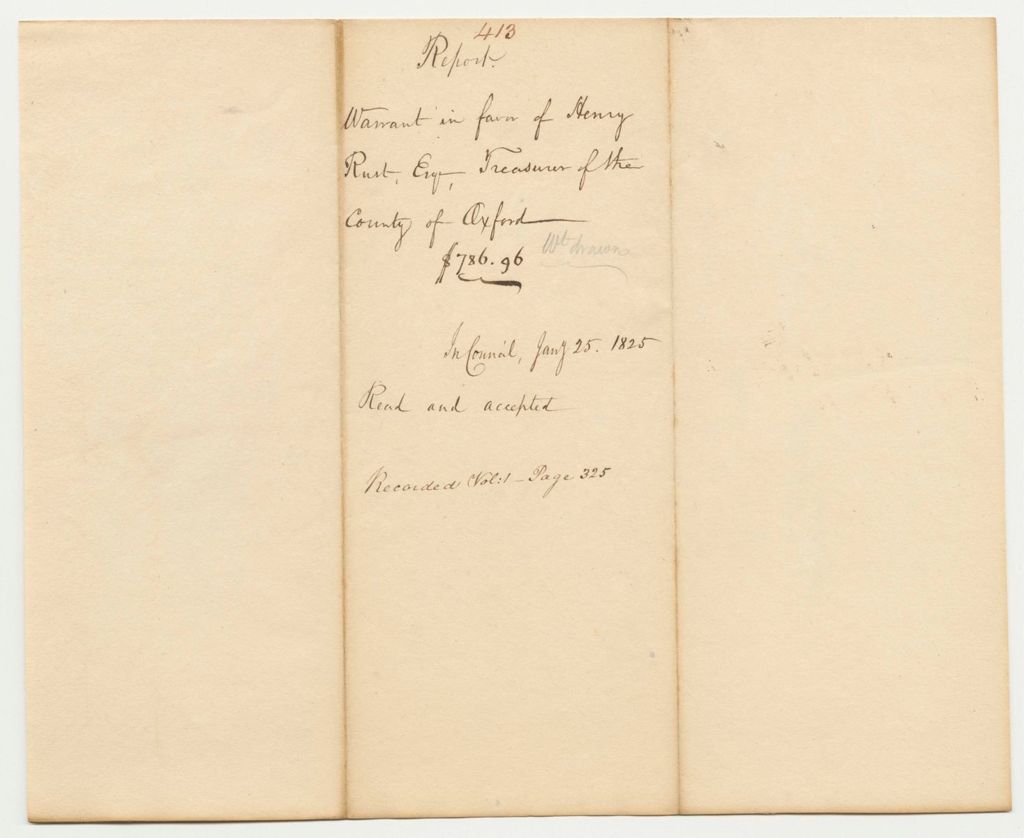 413
Report.
Warrant in favor of Henry
Rust, Esqr, Treasurer of the
County of Oxford
$786.96 Wt drawn
In Council, Jany 25. 1825
Read and accepted
Recorded Vol: 1 - Page 325